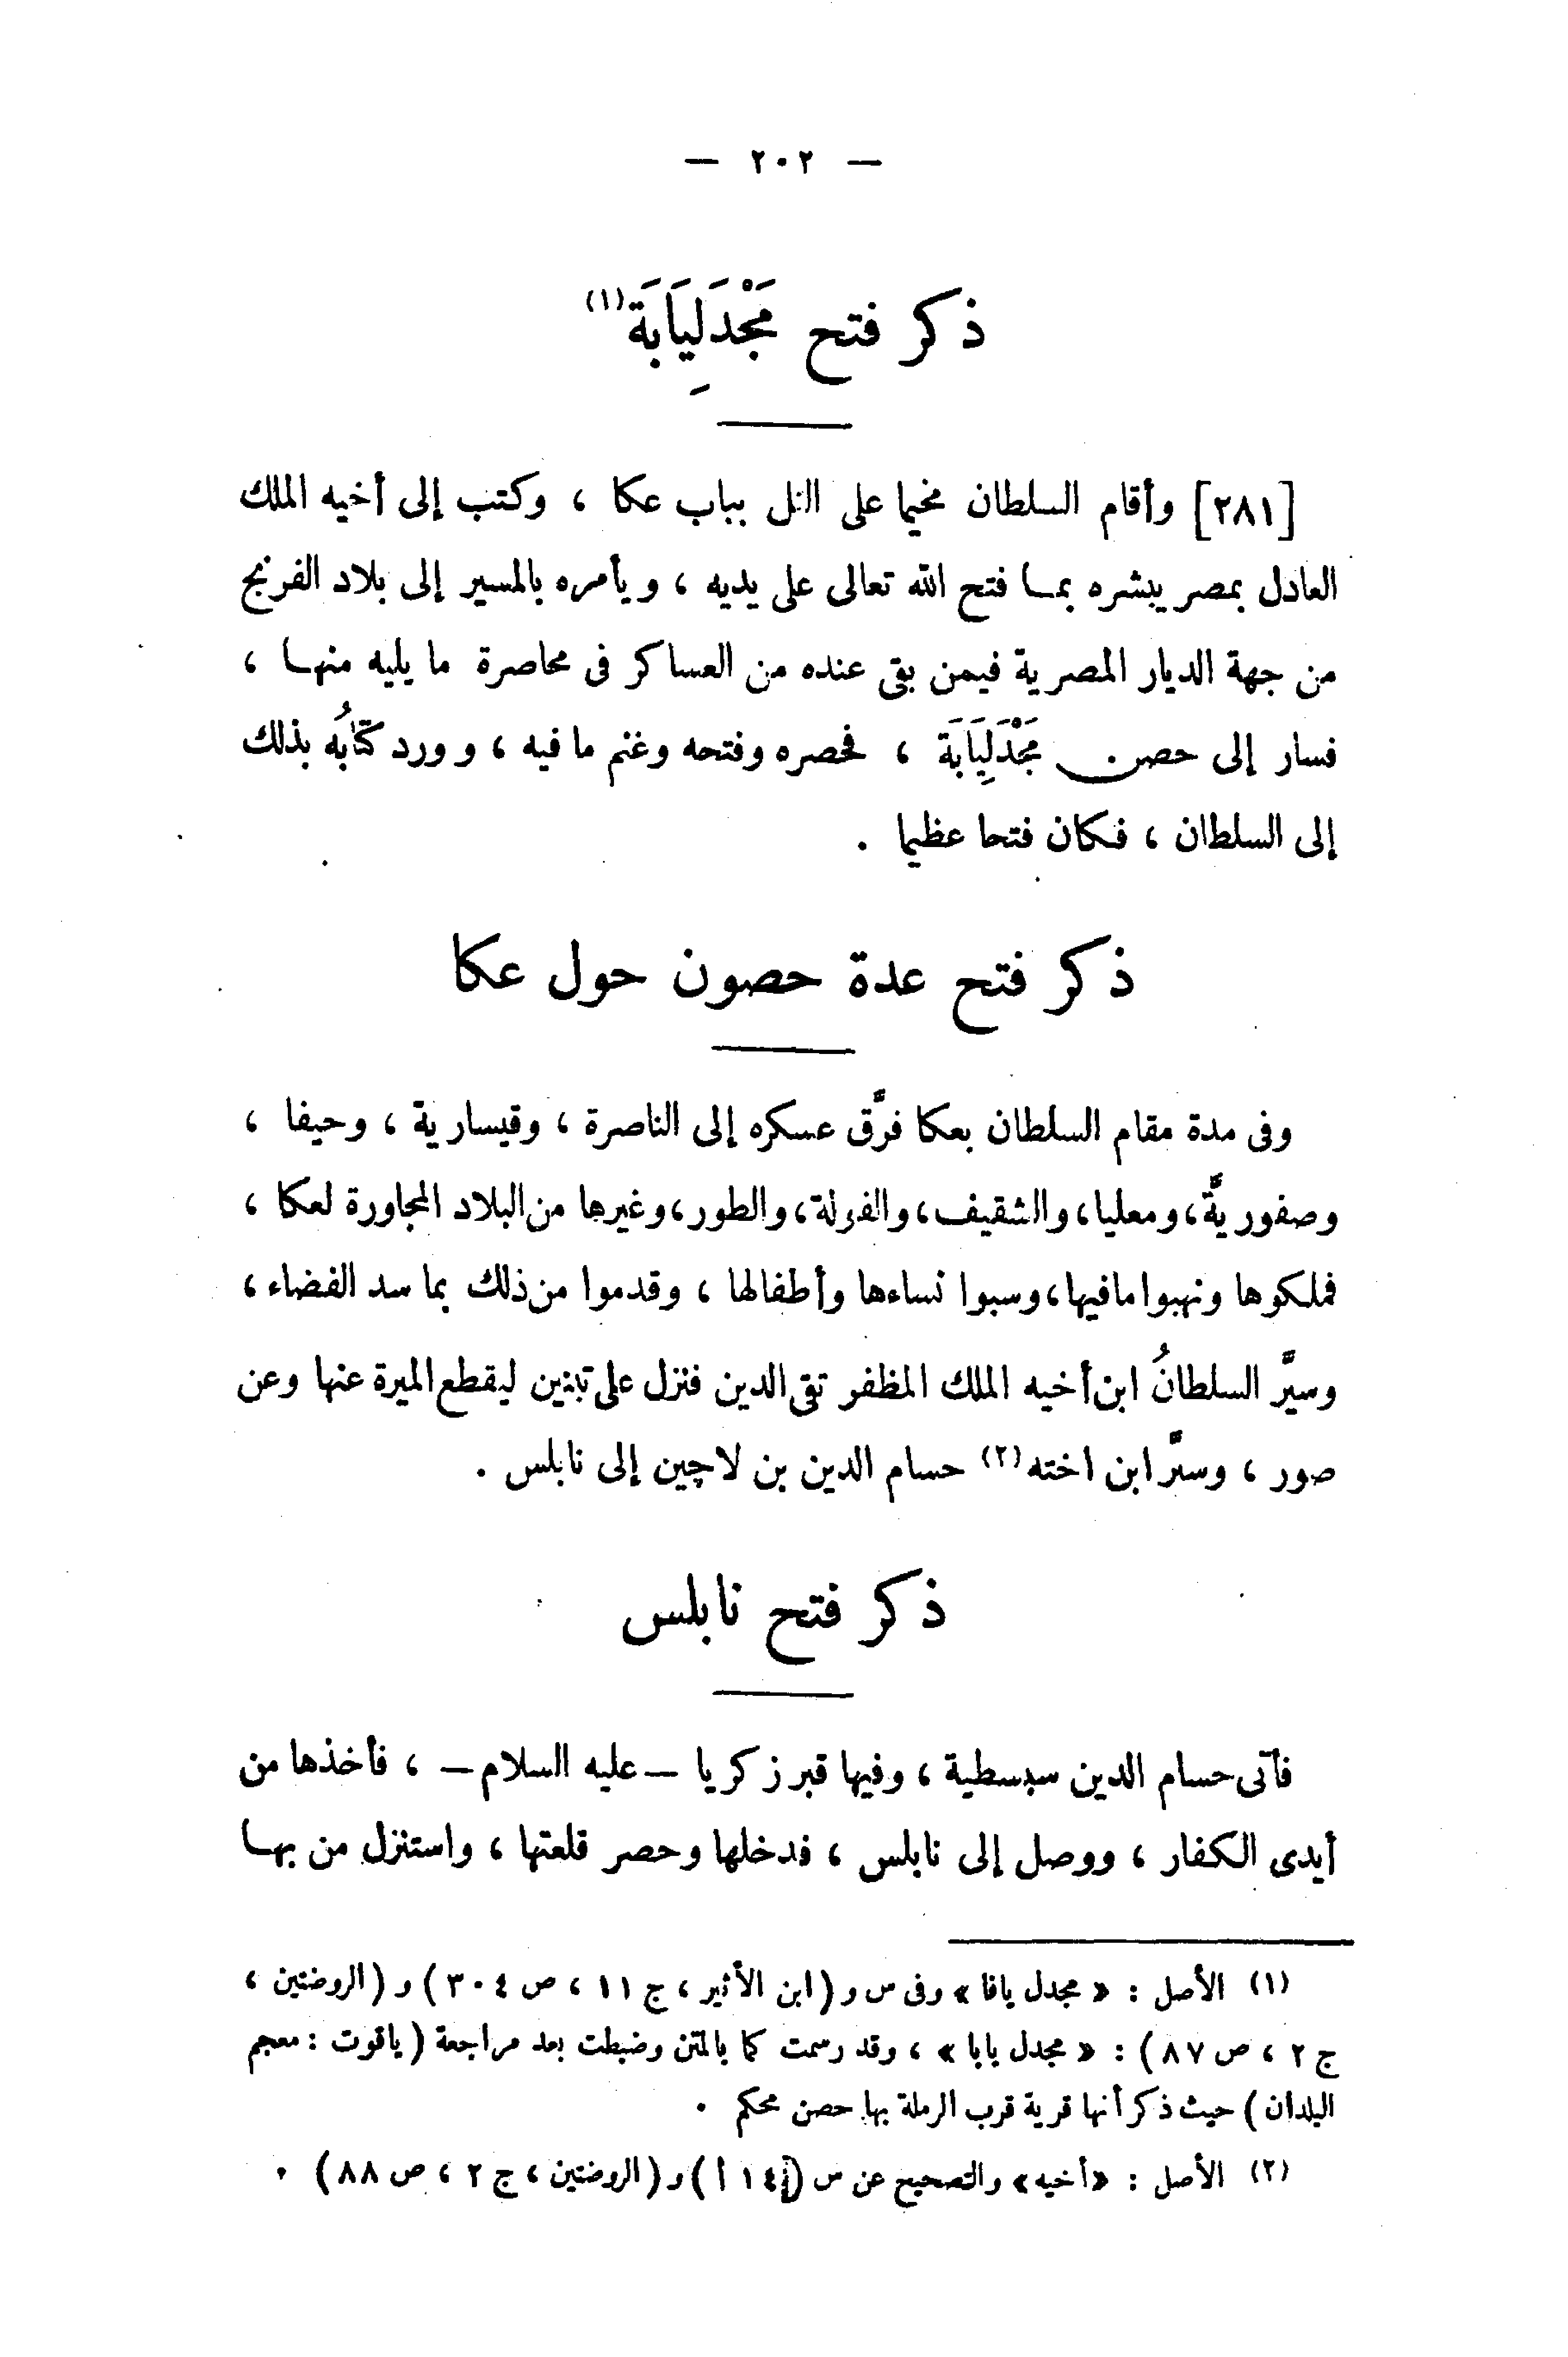 — ٢٠٢ —
ذكر فتح مَجْدَلِيَابَة(١)
[٢٨١] وأقام السلطان مخيما على التل بباب عكا ، وكتب إلى أخيه الملك
العادل بمصر يبشره بمـا فتح الله تعالى على يديه ، ويأمره بالمسير إلى بلاد الفرنج
من جهة الديار المصرية فيمن بقى عنده من العساكر فى محاصرة ما يليه منهـا ،
فسار إلى حصن مَجْدَلِيَابَة ، فحصره وفتحه وغنم ما فيه ، وورد كتابُه بذلك
إلى السلطان ، فكان فتحا عظيما .
ذكر فتح عدة حصون حول عكا
وفى مدة مقام السلطان بعكا فرَّق عسكره إلى الناصرة ، وقيسارية ، وحيفا ،
وصفوريَّة، ومعليا، والشقيف، والفولة، والطور، وغيرها من البلاد المجاورة لعكا ،
فملكوها ونهبوا مافيها، وسبوا نساءها وأطفالها ، وقدموا من ذلك بما سد الفضاء ،
وسيَّر السلطانُ ابن أخيه الملك المظفر تقى الدين فنزل على تبنين ليقطع الميرة عنها وعن
صور ، وسيَّر ابن اخته(٢) حسام الدين بن لاچين إلى نابلس .
ذكر فتح نابلس
فأتى حسام الدين سبسطية ، وفيها قبر زكريا — عليه السلام — ، فأخذها من
أيدى الكفار ، ووصل إلى نابلس ، فدخلها وحصر قلعتها ، واستنزل من بهـا
(١) الأصل : « مجدل يافا » وفى س و (ابن الأثير ، ج ١١ ، ص ٣٠٤) و (الروضتين ،
ج ٢ ، ص ٨٧) : « مجدل يابا » ، وقد رسمت كما بالمتن وضبطت بعد مراجعة (ياقوت : معجم
البلدان) حيث ذكر أنها قرية قرب الرملة بها حصن محكم .
(٢) الأصل : «أخيه» والتصحيح عن س ( ١٤ أ) و (الروضتين ، ج ٢ ، ص ٨٨) .